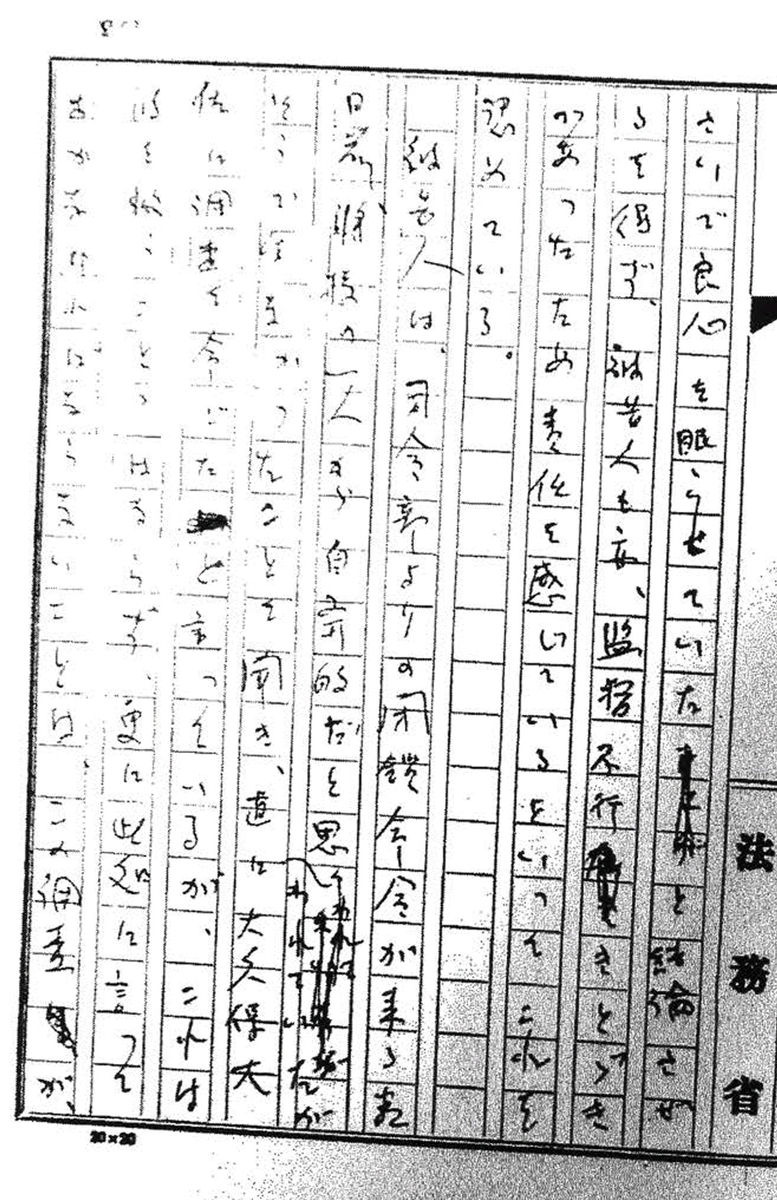 さいで良心を眠らせていたと結論させ
るを得ず、被告人も亦、監督不行きとゞき
のあったため責任を感じているといってこれを
認めている。
被告人は、司令部よりの閉鎖命令が来る数
日前、将校の一人から自宅的だと思
われていたが
そうで はなかったことを聞き、直に大久保大
佐に調査を命じたと言っているが、これは
注を惹くことゝはならず、更に此処に言って
おかなければならないことは、この調査が、
法務省
20×20